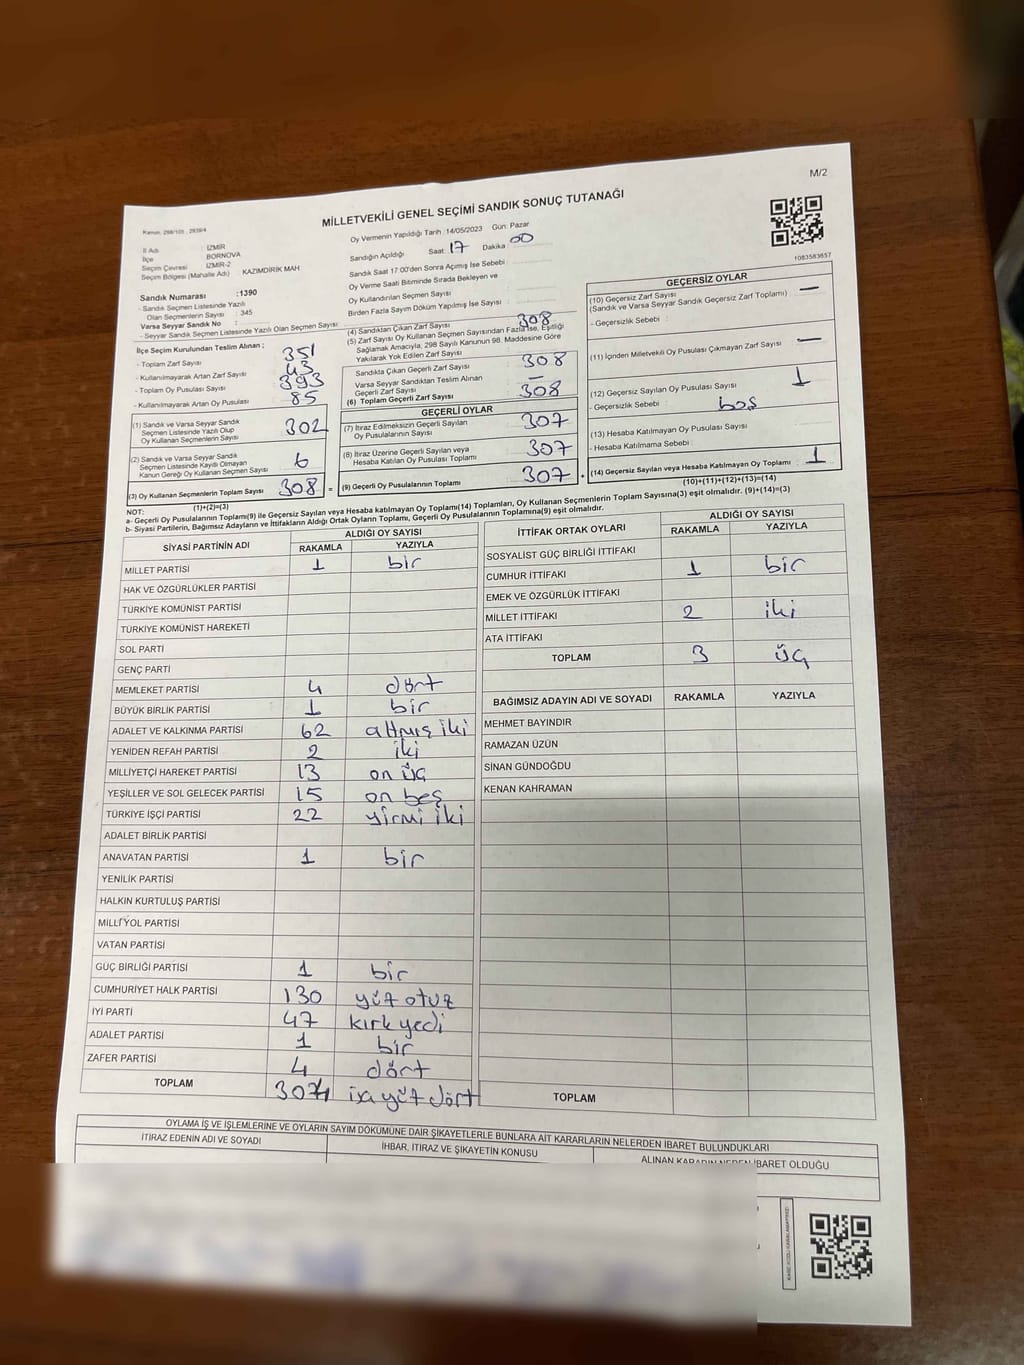 M/2
MİLLETVEKİLİ GENEL SEÇİMİ SANDIK SONUÇ TUTANAĞI
İl Adı : İZMİR
İlçe BORNOVA
Seçim Çevresi İZMİR-2
Seçim Bölgesi (Mahalle Adı) KAZIMDİRİK MAH
Sandık Numarası :1390
- Sandık Seçmen Listesinde Yazılı
Olan Seçmenlerin Sayısı : 345
Varsa Seyyar Sandık No :
- Seyyar Sandık Seçmen Listesinde Yazılı Olan Seçmen Sayısı :
Oy Vermenin Yapıldığı Tarih : 14/05/2023 Gün: Pazar
Sandığın Açıldığı Saat: 17 Dakika: 00
Sandık Saat 17:00'den Sonra Açımış İse Sebebi :
Oy Verme Saati Bitiminde Sırada Bekleyen ve
Oy Kullandırılan Seçmen Sayısı :
Birden Fazla Sayım Döküm Yapılmış İse Sayısı :
1083583657
İlçe Seçim Kurulundan Teslim Alınan ;
- Toplam Zarf Sayısı 351
- Kullanılmayarak Artan Zarf Sayısı 43
- Toplam Oy Pusulası Sayısı 393
- Kullanılmayarak Artan Oy Pusulası 85
(1) Sandık ve Varsa Seyyar Sandık
Seçmen Listesinde Yazılı Olup
Oy Kullanan Seçmenlerin Sayısı 302
(2) Sandık ve Varsa Seyyar Sandık
Seçmen Listesinde Kayıtlı Olmayan
Kanun Gereği Oy Kullanan Seçmen Sayısı 6
(3) Oy Kullanan Seçmenlerin Toplam Sayısı 308 =
(1)+(2)=(3)
(4) Sandıktan Çıkan Zarf Sayısı 308
(5) Zarf Sayısı Oy Kullanan Seçmen Sayısından Fazla ise, Eşitliği
Sağlamak Amacıyla, 298 Sayılı Kanunun 98. Maddesine Göre
Yakılarak Yok Edilen Zarf Sayısı
Sandıkta Çıkan Geçerli Zarf Sayısı 308
Varsa Seyyar Sandıktan Teslim Alınan
Geçerli Zarf Sayısı –
(6) Toplam Geçerli Zarf Sayısı 308
GEÇERLİ OYLAR
(7) İtiraz Edilmeksizin Geçerli Sayılan
Oy Pusulalarının Sayısı 307
(8) İtiraz Üzerine Geçerli Sayılan veya
Hesaba Katılan Oy Pusulası Toplamı 307
(9) Geçerli Oy Pusulalarının Toplamı 307
GEÇERSİZ OYLAR
(10) Geçersiz Zarf Sayısı —
(Sandık ve Varsa Seyyar Sandık Geçersiz Zarf Toplamı)
- Geçersizlik Sebebi :
(11) İçinden Milletvekili Oy Pusulası Çıkmayan Zarf Sayısı —
(12) Geçersiz Sayılan Oy Pusulası Sayısı 1
- Geçersizlik Sebebi : boş
(13) Hesaba Katılmayan Oy Pusulası Sayısı
- Hesaba Katılmama Sebebi :
(14) Geçersiz Sayılan veya Hesaba Katılmayan Oy Toplamı 1
(10)+(11)+(12)+(13)=(14)
NOT:
a- Geçerli Oy Pusulalarının Toplamı(9) ile Geçersiz Sayılan veya Hesaba katılmayan Oy Toplamı(14) Toplamları, Oy Kullanan Seçmenlerin Toplam Sayısına(3) eşit olmalıdır. (9)+(14)=(3)
b- Siyasi Partilerin, Bağımsız Adayların ve İttifakların Aldığı Ortak Oyların Toplamı, Geçerli Oy Pusulalarının Toplamına(9) eşit olmalıdır.
SİYASİ PARTİNİN ADI ALDIĞI OY SAYISI
RAKAMLA YAZIYLA
MİLLET PARTİSİ 1 bir
HAK VE ÖZGÜRLÜKLER PARTİSİ
TÜRKİYE KOMÜNİST PARTİSİ
TÜRKİYE KOMÜNİST HAREKETİ
SOL PARTİ
GENÇ PARTİ
MEMLEKET PARTİSİ 4 dört
BÜYÜK BİRLİK PARTİSİ 1 bir
ADALET VE KALKINMA PARTİSİ 62 altmış iki
YENİDEN REFAH PARTİSİ 2 iki
MİLLİYETÇİ HAREKET PARTİSİ 13 on üç
YEŞİLLER VE SOL GELECEK PARTİSİ 15 on beş
TÜRKİYE İŞÇİ PARTİSİ 22 yirmi iki
ADALET BİRLİK PARTİSİ
ANAVATAN PARTİSİ 1 bir
YENİLİK PARTİSİ
HALKIN KURTULUŞ PARTİSİ
MİLLİ YOL PARTİSİ
VATAN PARTİSİ
GÜÇ BİRLİĞİ PARTİSİ 1 bir
CUMHURİYET HALK PARTİSİ 130 yüz otuz
İYİ PARTİ 47 kırk yedi
ADALET PARTİSİ 1 bir
ZAFER PARTİSİ 4 dört
TOPLAM 304 üç yüz dört
İTTİFAK ORTAK OYLARI ALDIĞI OY SAYISI
RAKAMLA YAZIYLA
SOSYALİST GÜÇ BİRLİĞİ İTTİFAKI
CUMHUR İTTİFAKI 1 bir
EMEK VE ÖZGÜRLÜK İTTİFAKI
MİLLET İTTİFAKI 2 iki
ATA İTTİFAKI
TOPLAM 3 üç
BAĞIMSIZ ADAYIN ADI VE SOYADI RAKAMLA YAZIYLA
MEHMET BAYINDIR
RAMAZAN ÜZÜN
SİNAN GÜNDOĞDU
KENAN KAHRAMAN
TOPLAM
OYLAMA İŞ VE İŞLEMLERİNE VE OYLARIN SAYIM DÖKÜMÜNE DAİR ŞİKAYETLERLE BUNLARA AİT KARARLARIN NELERDEN İBARET BULUNDUKLARI
İTİRAZ EDENİN ADI VE SOYADI İHBAR, İTİRAZ VE ŞİKAYETİN KONUSU ALINAN KARARIN NEDEN İBARET OLDUĞU